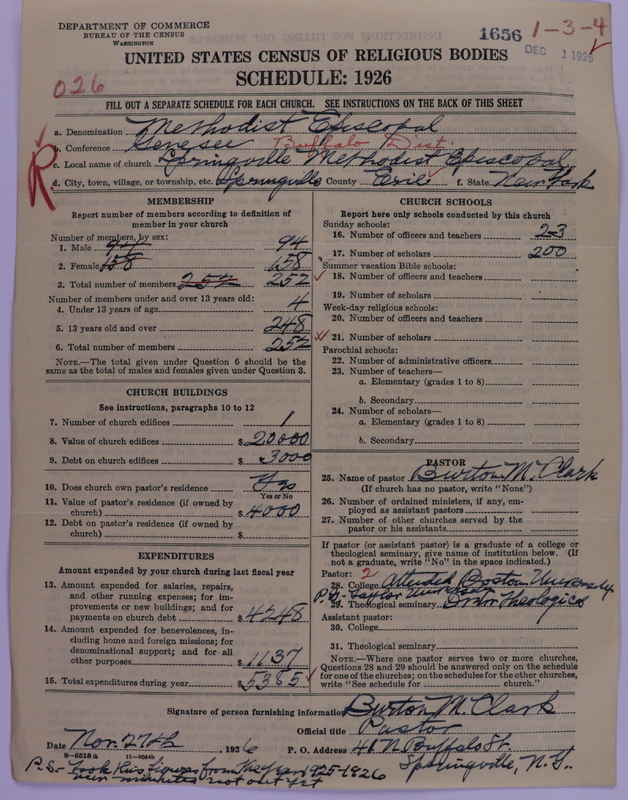 DEPARTMENT OF COMMERCE
BUREAU OF THE CENSUS
WASHINGTON
1656 1-3-4
DEC 1 1926
UNITED STATES CENSUS OF RELIGIOUS BODIES
SCHEDULE: 1926
026
FILL OUT A SEPARATE SCHEDULE FOR EACH CHURCH. SEE INSTRUCTIONS ON THE BACK OF THIS SHEET
R
a. Denomination Methodist Episcopal
b. Conference Genesee Buffalo Dist.
c. Local name of church Springville Methodist Episcopal
d. City, town, village, or township, etc. Springville County Erie f. State New York
MEMBERSHIP
Report number of members according to definition of member in your church
Number of members, by sex:
1. Male 94 94
2. Female 158 158
3. Total number of members 252 252
Number of members under and over 13 years old:
4. Under 13 years of age 4
5. 13 years old and over 248
6. Total number of members 252
NOTE.—The total given under Question 6 should be the same as the total of males and females given under Question 3.
CHURCH BUILDINGS
See instructions, paragraphs 10 to 12
7. Number of church edifices 1
8. Value of church edifices $20000
9. Debt on church edifices $3000
10. Does church own pastor's residence Yes
Yes or No
11. Value of pastor's residence (if owned by church) $4000
12. Debt on pastor's residence (if owned by church) $
EXPENDITURES
Amount expended by your church during last fiscal year
13. Amount expended for salaries, repairs, and other running expenses; for improvements or new buildings; and for payments on church debt $4248
14. Amount expended for benevolences, including home and foreign missions; for denominational support; and for all other purposes $1137
15. Total expenditures during year $5385
CHURCH SCHOOLS
Report here only schools conducted by this church
Sunday schools:
16. Number of officers and teachers 23
17. Number of scholars 200
Summer vacation Bible schools:
18. Number of officers and teachers
19. Number of scholars
Week-day religious schools:
20. Number of officers and teachers
21. Number of scholars
Parochial schools:
22. Number of administrative officers
23. Number of teachers—
a. Elementary (grades 1 to 8)
b. Secondary
24. Number of scholars—
a. Elementary (grades 1 to 8)
b. Secondary
PASTOR
25. Name of pastor Burton M. Clark
(If church has no pastor, write "None")
26. Number of ordained ministers, if any, employed as assistant pastors
27. Number of other churches served by the pastor or his assistants
If pastor (or assistant pastor) is a graduate of a college or theological seminary, give name of institution below. (If not a graduate, write "No" in the space indicated.)
Pastor: 2
28. College Attended Boston University
P.G. Taylor University
29. Theological seminary Theological
Assistant pastor:
30. College
31. Theological seminary
NOTE.—Where one pastor serves two or more churches, Questions 28 and 29 should be answered only on the schedule for one of the churches; on the schedules for the other churches, write "See schedule for church."
Signature of person furnishing information Burton M. Clark
Official title Pastor
Date Nov. 27th, 1926 P. O. Address 41 N. Buffalo St.
8—5518 Springville, N.Y.
P.S. Took this figures from the year 1925-1926
new minutes not out yet